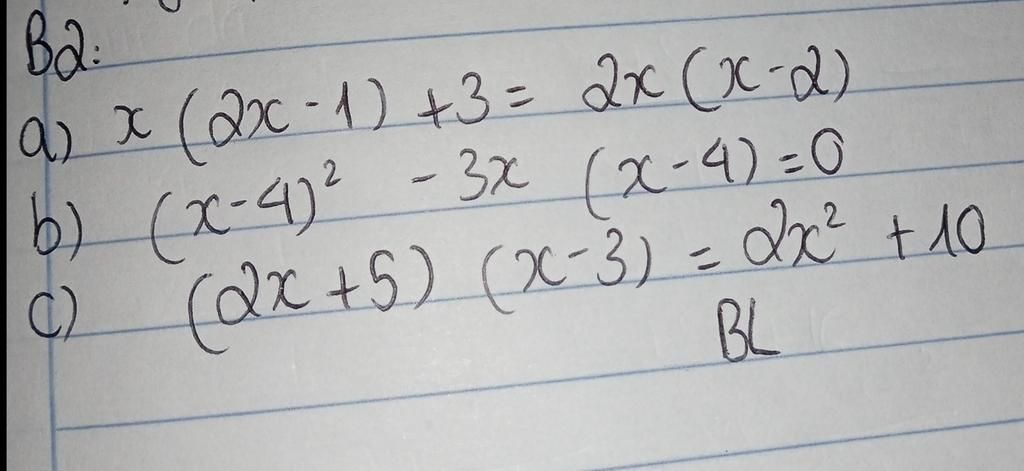 B2:
a) x (2x - 1) + 3 = 2x (x - 2)
b) (x - 4)² - 3x (x - 4) = 0
c) (2x + 5) (x - 3) = 2x² + 10
BL